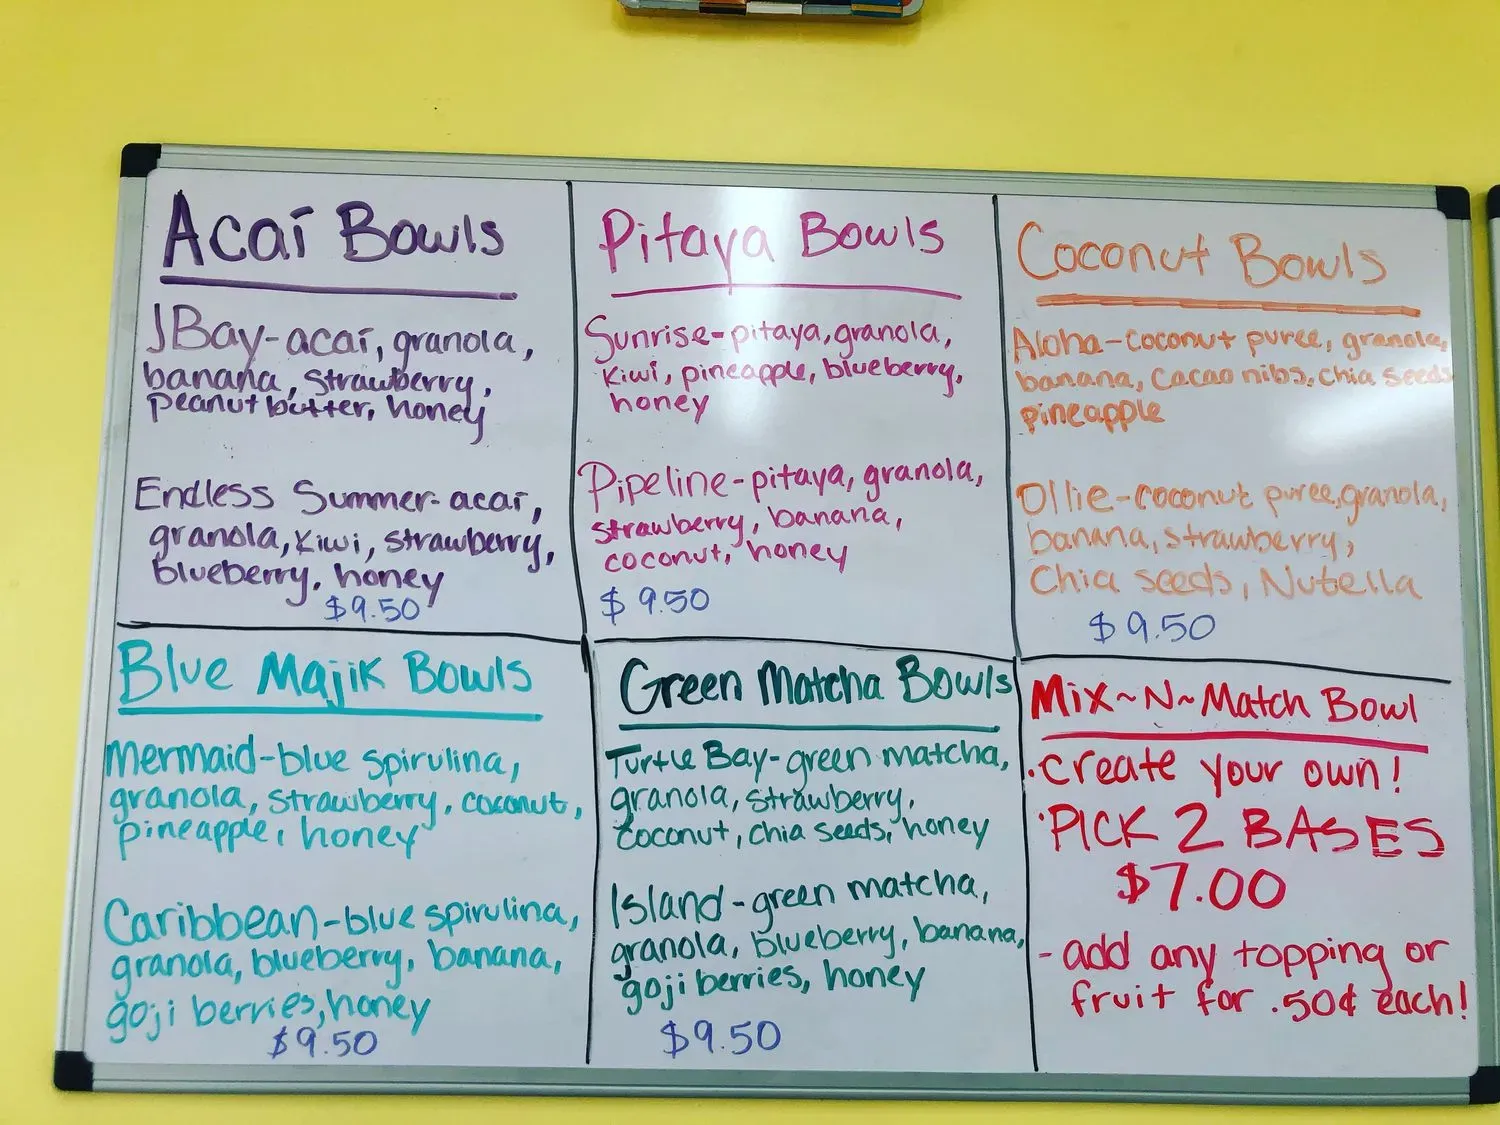 Acaí Bowls
JBay-acaí, granola,
banana, strawberry,
peanut butter, honey
Endless Summer-acaí,
granola, kiwi, strawberry,
blueberry, honey
$9.50
Pitaya Bowls
Sunrise-pitaya, granola,
kiwi, pineapple, blueberry,
honey
Pipeline-pitaya, granola,
strawberry, banana,
coconut, honey
$9.50
Coconut Bowls
Aloha-coconut puree, granola,
banana, cacao nibs, chia seeds
pineapple
Ollie-coconut puree, granola,
banana, strawberry,
Chia seeds, Nutella
$9.50
Blue Majik Bowls
Mermaid-blue spirulina,
granola, strawberry, coconut,
pineapple, honey
Caribbean-blue spirulina,
granola, blueberry, banana,
goji berries, honey
$9.50
Green Matcha Bowls
Turtle Bay-green matcha,
granola, strawberry,
coconut, chia seeds, honey
Island-green matcha,
granola, blueberry, banana,
goji berries, honey
$9.50
Mix~N~Match Bowl
·create your own!
·PICK 2 BASES
$7.00
- add any topping or
fruit for .50¢ each!